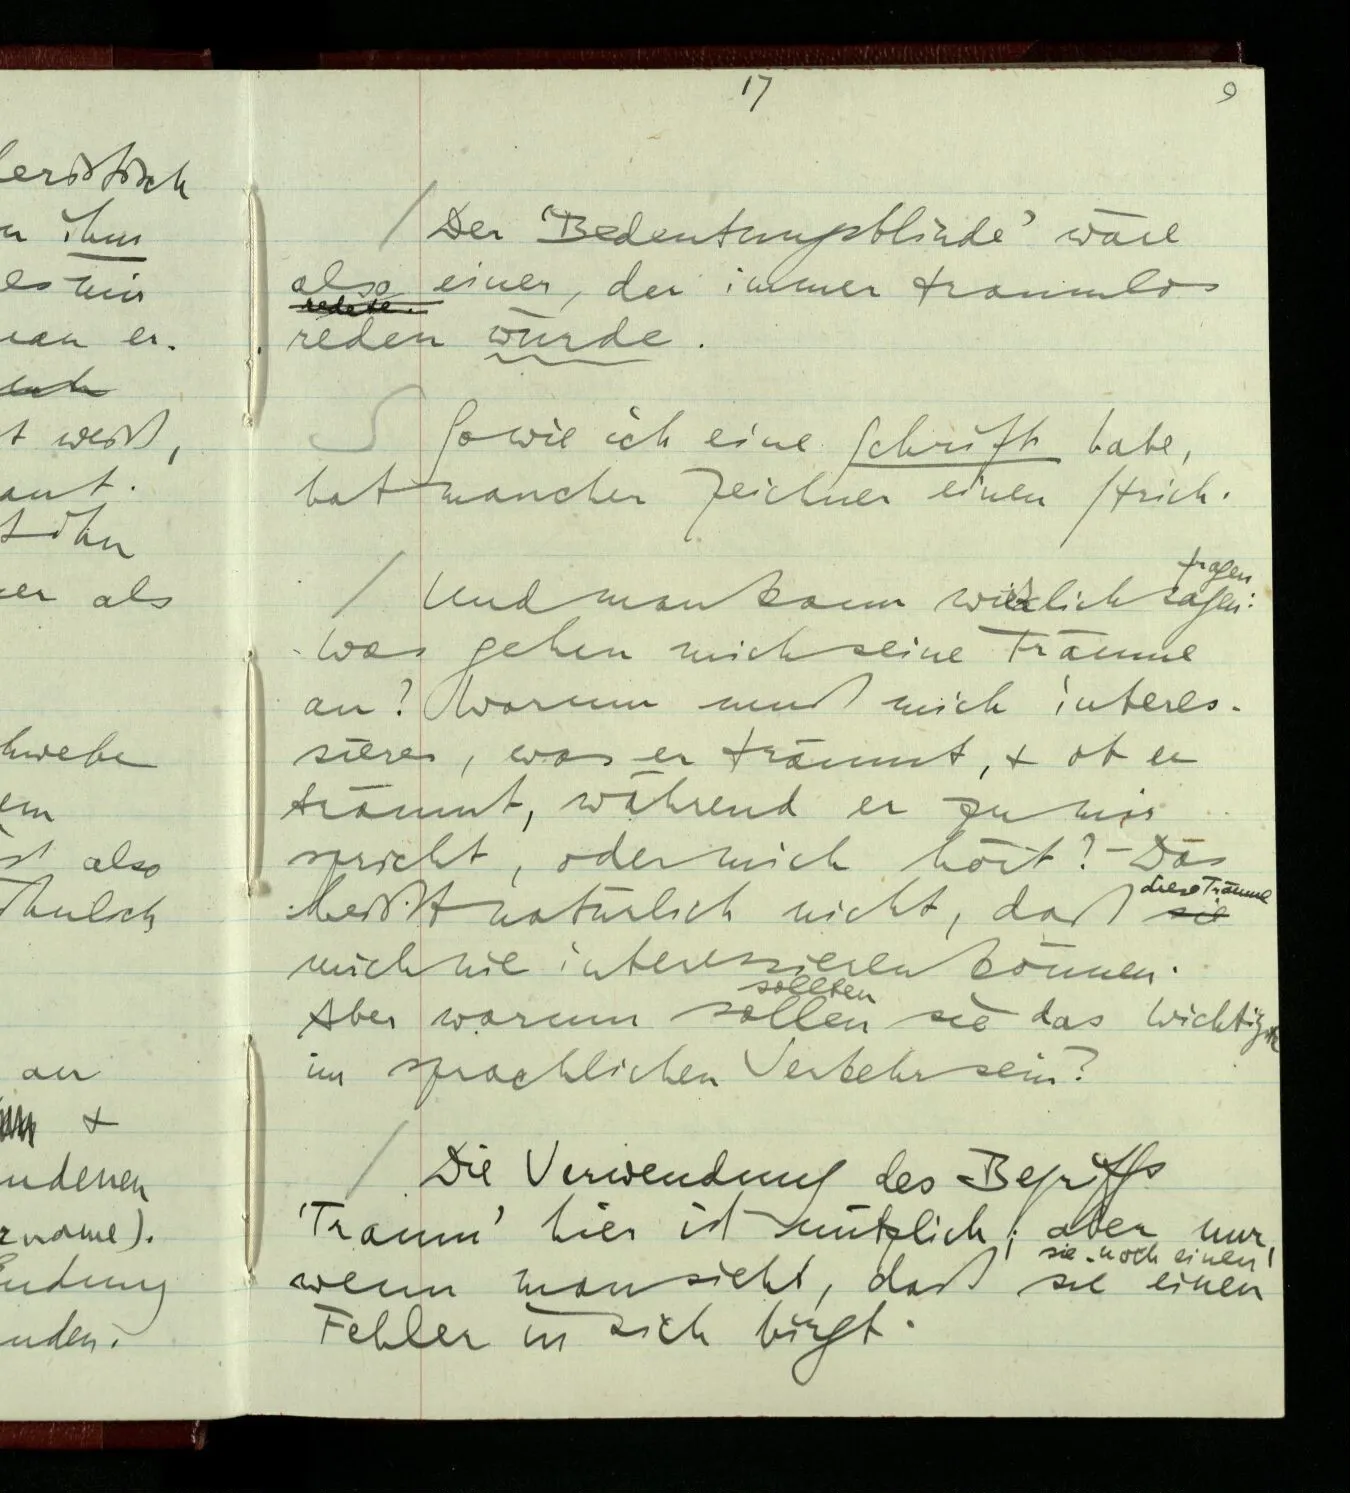 leristisch
n ihm
es mir
man er-
t weiß,
aut.
t ihn
er als
hwebe
em
ist also
Ähnlich
an
+
ndenen
rname).
Endung
nden.
17
9
/ Der 'Bedeutungsblinde' wäre
also einer, der immer traumlos
redete.
reden würde.
S Sowie ich eine Schrift habe,
hat mancher Zeichner einen Strich.
fragen
/ Und man kann wirklich sagen:
Was gehen mich seine Träume
an? Warum muß mich interes-
sieren, was er träumt, + ob er
träumt, während er zu mir
spricht, oder mich hört? – Das
diese Träume
heißt natürlich nicht, daß sie
mich nie interessieren können.
sollten
Aber warum sollen sie das Wichtigste
im sprachlichen Verkehr sein?
/ Die Verwendung des Begriffs
'Traum' hier ist nützlich; aber nur,
sie noch einen
wenn man sieht, daß sie einen
Fehler in sich birgt.